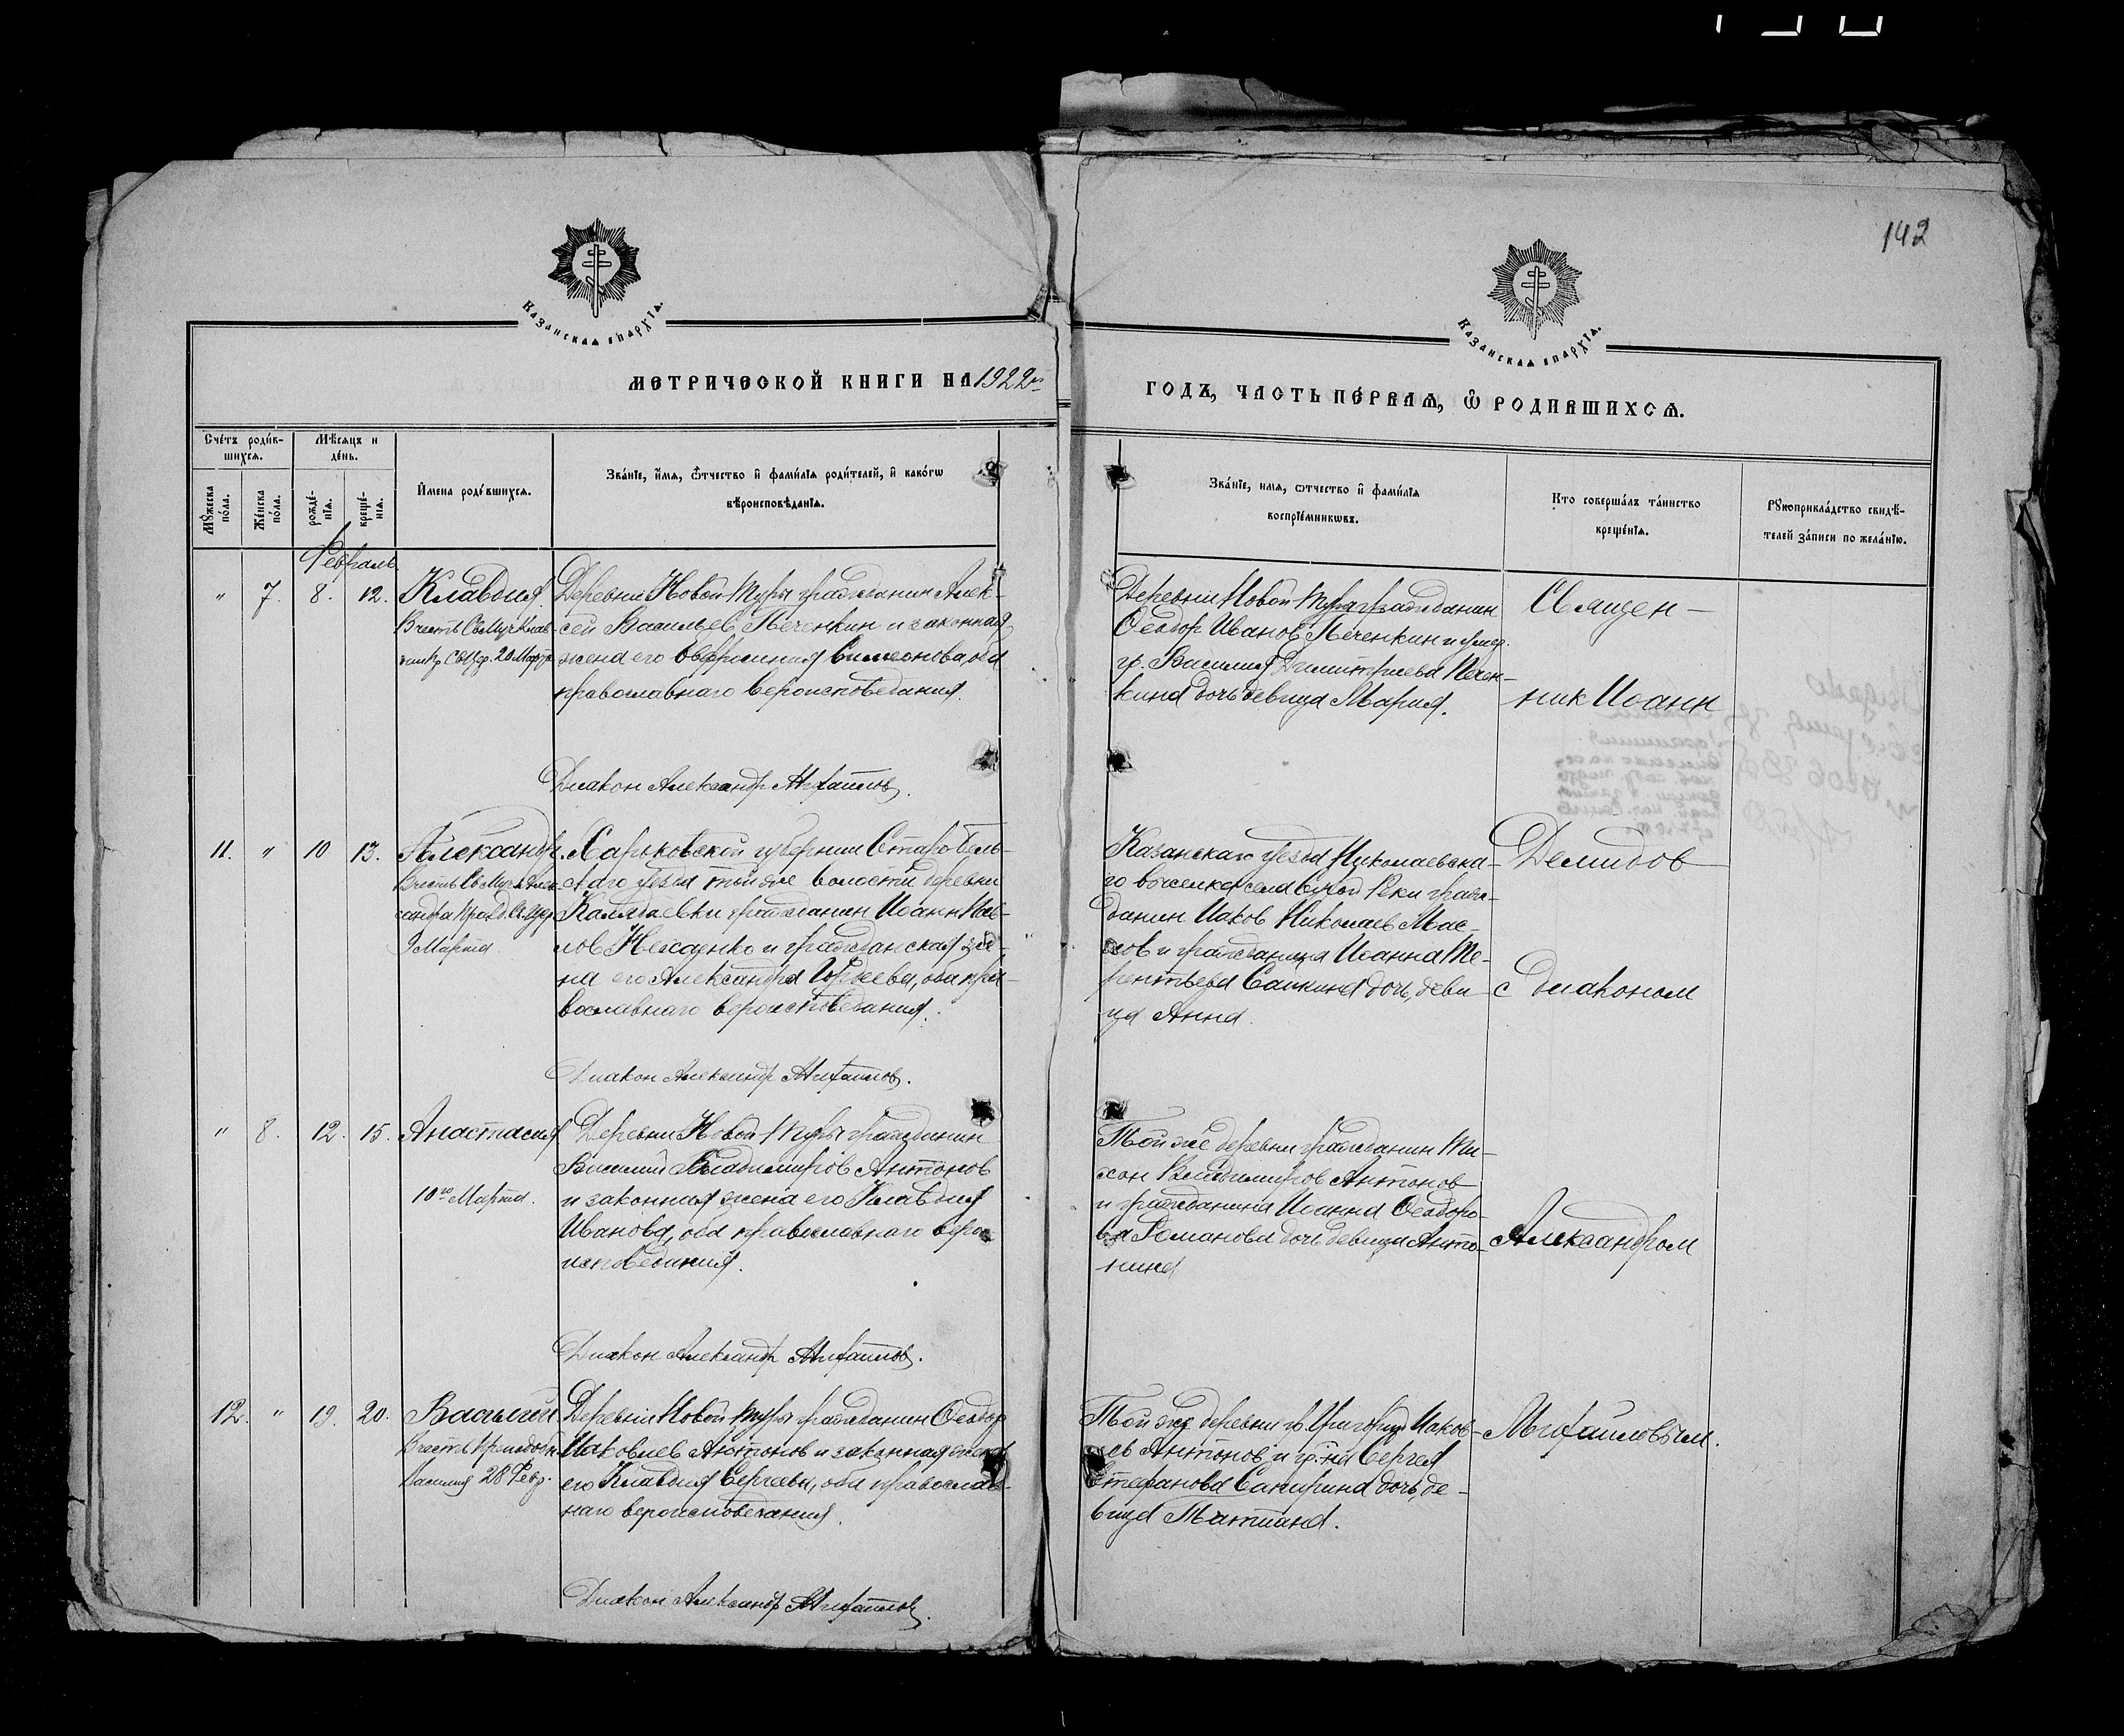 142
Казанская епархїа.
Казанская епархїа.
МЕТРИЧЕСКОЙ КНИГИ НА 1922й
ГОДЪ, ЧАСТЬ ПЕРВАЯ, Ѿ РОДИВШИХСЯ.
Счетъ родив-
шихся.
Мѣсяцъ и
день.
Мужеска
пола.
Женска
пола.
рожде-
нїя.
креще-
нїя.
Имена родившихся.
Званїе, имя, ѿтчество и фамилїя родителей, и какогѡ
вѣроисповѣданїя.
Званїе, имя, ѿтчество и фамилїя
воспрїемникѡвъ.
Кто совершалъ таинство
крещенїя.
Рукоприкладство свидѣ-
телей записи по желанїю.
Февраль
" 7. 8. 12. Клавдия.
В честь Св Муч Клав-
20 Марта
Деревни Новой Туры гражданин Алек-
сей Васильев Печенкин и законная
жена его Евфросиния Симеонова, оба
православнаго вероисповедания.
Диакон Александр Михайлов.
Деревни Новой Туры гражданин
Феодор Иванов Печенкин и умер.
гр. Василия Димитриева Печен-
кина дочь девица Мария.
Священ-
ник Иоанн
11. " 10 13. Александр.
В честь Св Муч Алек-
сандра
9 Марта
Харьковской губернии Старобель-
скаго уезда той же волости деревни
гражданин Иоанн Пав-
лов и гражданская же-
на его Александра оба пра-
вославнаго вероисповедания.
Диакон Александр Михайлов.
Казанскаго уезда Николаевска-
го села Сухой Реки граж-
данин Иаков Николаев Мас-
лов и гражданина Иоанна Те-
рентьева дочь, деви-
ца Анна.
Демидов
с диаконом
" 8. 12. 15. Анастасия
10го Марта.
Деревни Новой Туры гражданин
Василий Владимиров Антонов
и законная жена его Клавдия
Иванова, оба православнаго веро-
исповедания.
Диакон Александр Михайлов.
Той же деревни гражданин Ти-
хон Владимиров Антонов
и гражданина Иоанна Феодоро-
ва Романова дочь девица Анто-
нина
Александром
12. " 19. 20. Василий
В честь Преподобн
Василия 28 Февр.
Деревни Новой Туры гражданин Феодор
Иаковлев Антонов и законная жена
его Клавдия Сергеева, оба православ-
наго вероисповедания.
Диакон Александр Михайлов.
Той же деревни гр. Григорий Иаков-
лев Антонов и гр-на Сергея
Стефанова дочь, де-
вица Татиана.
Михайловым.